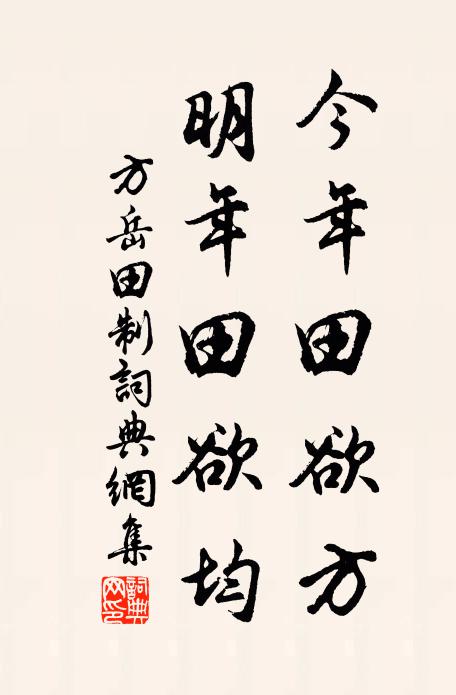 今年田欲方
明年田欲均
方岳田制詞典網集
詞典网印